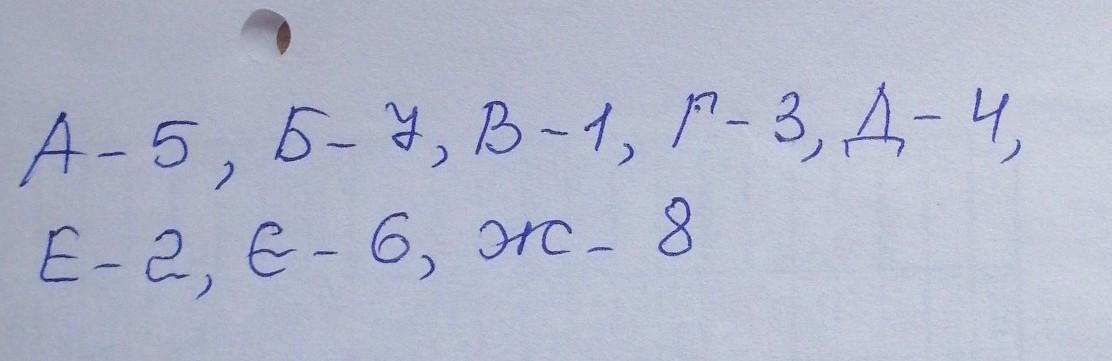 А - 5, Б - 7, В - 1, Г - 3, Д - 4,
Е - 2, Є - 6, Ж - 8